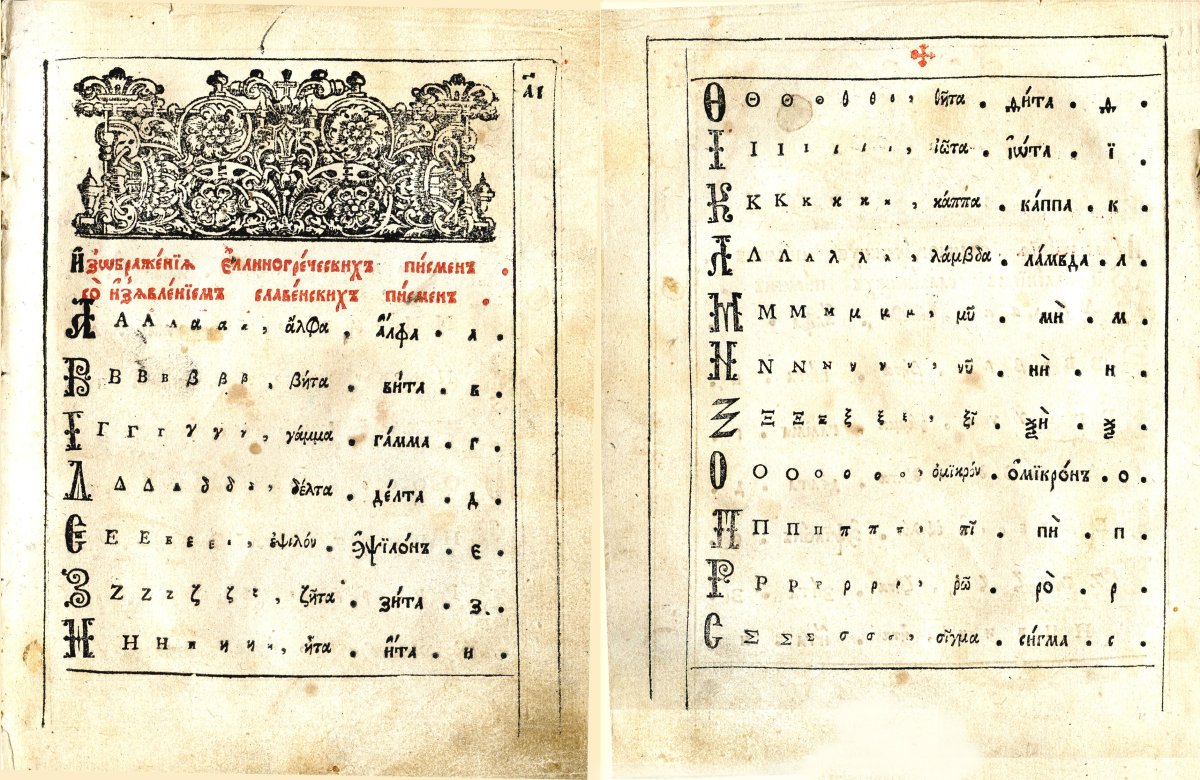 а҃і
И҆зѡбраже́нїѧ є҆́ллиногре́ческихъ пи́смен .
со и҆з̾ѧвле́нїемъ славе́нскихъ пи́смен .
А Α Α Α α α α , ἄλφα , а҆́лфа . а .
В Β Β Β β β β . βῆτα . ви́та . в .
Г Γ Γ Γ γ γ γ , γάμμα . га́мма . г .
Д Δ Δ Δ δ δ δ , δέλτα . де́лта . д .
Є Ε Ε Ε ε ε ε , ἐψιλόν . є҆ѱїло́нъ . є .
З Ζ Ζ Ζ ζ ζ ζ , ζῆτα . зи́та . з .
И Η Η η η η , ἦτα . и҆́та . и .
Ѳ Θ Θ Θ θ θ θ , θῆτα . ѳи́та . ѳ .
І Ι Ι Ι ι ι ι , ἰῶτα . і҆ѡ́та . ї .
К Κ Κ Κ κ κ κ , κάππα . ка́ппа . к .
Л Λ Λ Λ λ λ λ , λάμβδα . ла́мвда . л .
М Μ Μ Μ μ μ μ , μῦ . мѝ . м .
Н Ν Ν Ν ν ν ν , νῦ . нѝ . н .
Ξ Ξ Ξ Ξ ξ ξ ξ , ξῖ . ѯѝ . ѯ .
О Ο Ο Ο ο ο ο , ὀμικρόν . о҆мікро́нъ . о .
П Π Π Π π π π , πῖ . пѝ . п .
Р Ρ Ρ Ρ ρ ρ ρ , ῥῶ . ро̀ . р .
С Σ Σ Σ σ σ σ , σῖγμα . си́гма . с .